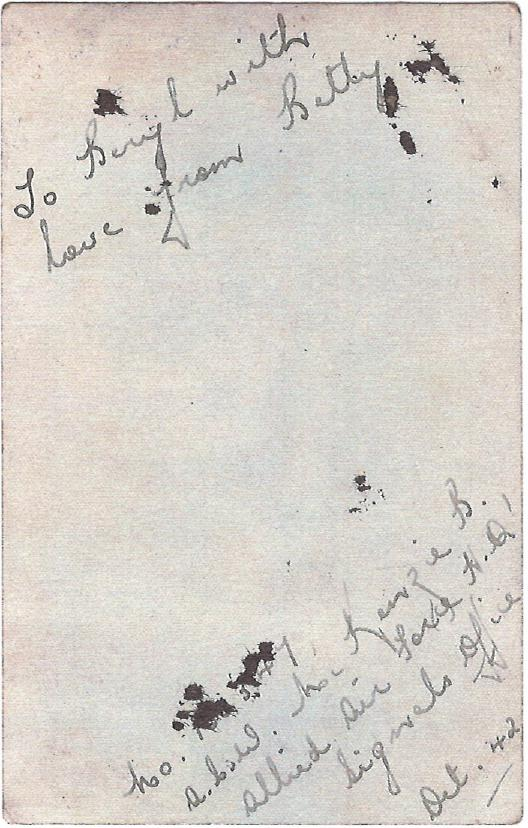 To Beryl with
love from Betty
No.
MacKenzie B.
Allied Air Force H.Q.
Signals Office
Oct. 42